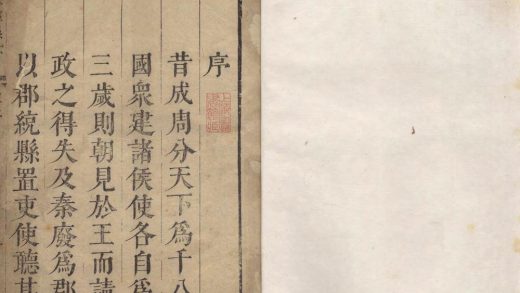 序
昔成周分天下爲千八
國衆建諸侯使各自爲
三歲則朝見於王而請
政之得失及秦廢爲郡
以郡統縣置吏使聽其